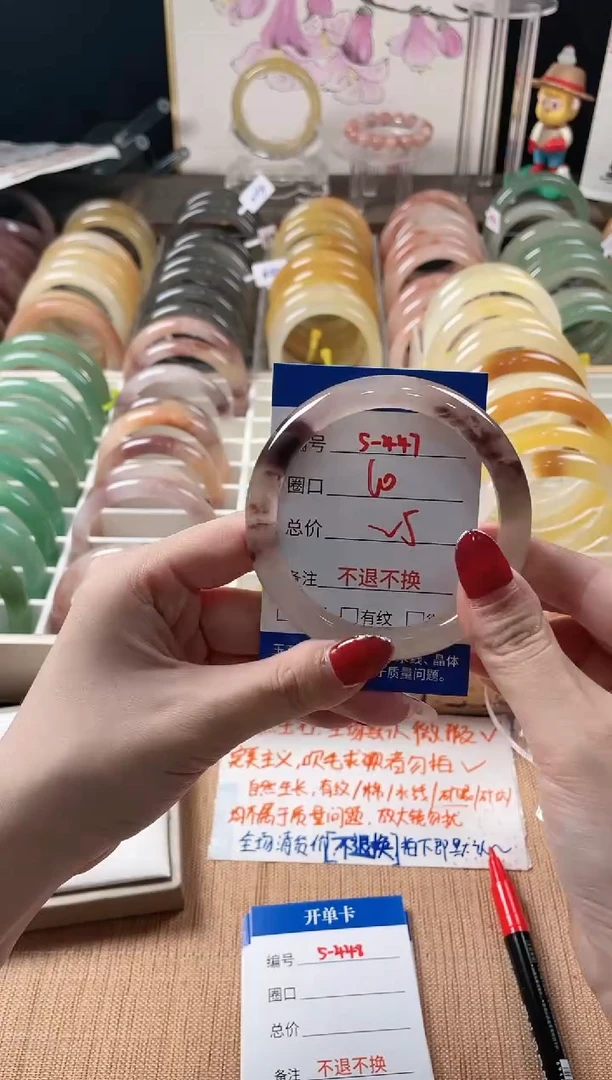 编号 5-447
圈口 60
总价 √5
备注 不退不换
有纹
水线、晶体
质量问题。
完美主义,吹毛求疵者勿拍 ✓
自然生长,有纹/棉/水线/
均不属于质量问题,放大镜勿扰
全场清货价[不退换]拍下即默认~
开单卡
编号 5-448
圈口
总价
备注 不退不换